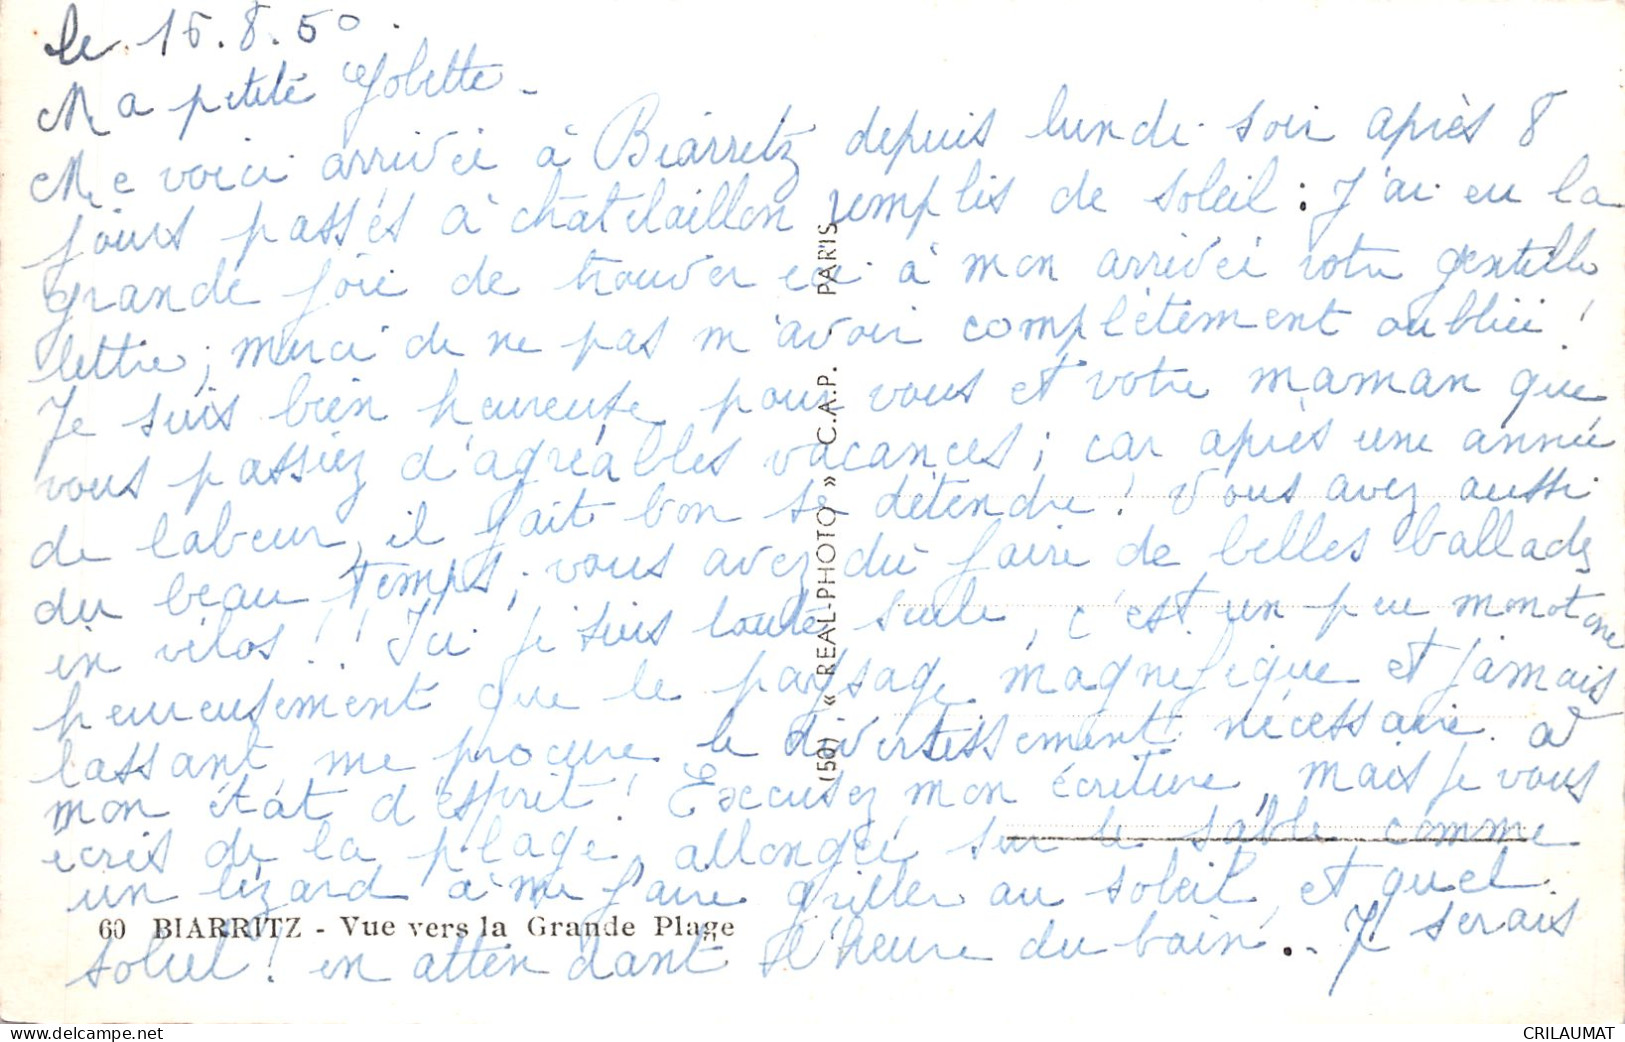 le 16.8.50.
Ma petite Yobette -
Me voici arrivée à Biarritz depuis lundi soir après 8
jours passés à chatelaillon remplis de soleil : J'ai eu la
grande joie de trouver ici à mon arrivée votre gentille
lettre ; merci de ne pas m'avoir complètement oubliée !
Je suis bien heureuse pour vous et votre maman que
vous passiez d'agréables vacances ; car après une année
de labeur, il fait bon se détendre ! Vous avez aussi
du beau temps ; vous avez dû faire de belles ballades
en vélos !! Ici je suis toute seule, c'est un peu monotone
heureusement que le paysage magnifique et jamais
lassant me procure le divertissement nécessaire à
mon état d'esprit ! Excusez mon écriture, mais je vous
écris de la plage, allongée sur le sable comme
un lézard à me faire griller au soleil, et quel
60 BIARRITZ - Vue vers la Grande Plage
soleil ! en attendant l'heure du bain... Je serais
(50) « REAL-PHOTO » C.A.P. PARIS
delcampe.net
CRILAUMAT